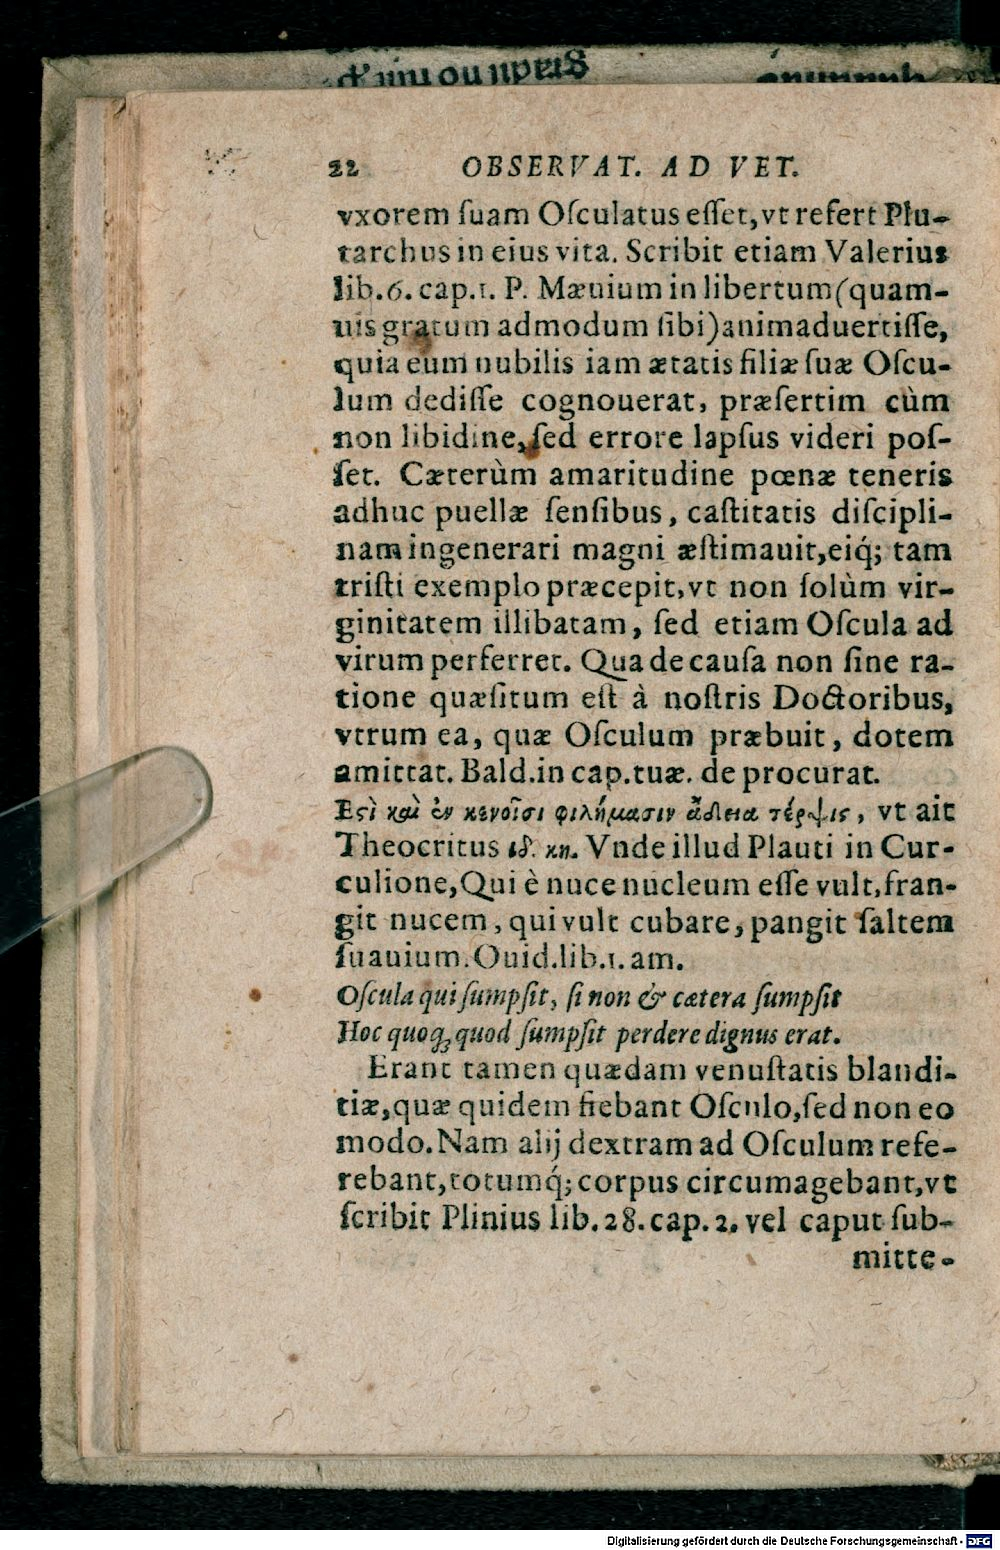 22 OBSERVAT. AD VET.
vxorem ſuam Oſculatus eſſet, vt refert Plu-
tarchus in eius vita. Scribit etiam Valerius
lib. 6. cap. 1. P. Mæuium in libertum (quam-
uis gratum admodum ſibi) animaduertiſſe,
quia eum nubilis iam ætatis filiæ ſuæ Oſcu-
lum dediſſe cognouerat, præſertim cùm
non libidine, ſed errore lapſus videri poſ-
ſet. Cæterùm amaritudine pœnæ teneris
adhuc puellæ ſenſibus, caſtitatis diſcipli-
nam ingenerari magni æſtimauit, eiq́; tam
triſti exemplo præcepit, vt non ſolùm vir-
ginitatem illibatam, ſed etiam Oſcula ad
virum perferret. Qua de cauſa non ſine ra-
tione quæſitum eſt à noſtris Doctoribus,
vtrum ea, quæ Oſculum præbuit, dotem
amittat. Bald. in cap. tuæ. de procurat.
Εςὶ καὶ ἐν κενοῖσι φιλήμασιν ἅδεια τέρψις, vt ait
Theocritus ιδ. κη. Vnde illud Plauti in Cur-
culione, Qui è nuce nucleum eſſe vult, fran-
git nucem, qui vult cubare, pangit ſaltem
ſuauium. Ouid. lib. 1. am.
Oſcula qui ſumpſit, ſi non & cætera ſumpſit
Hoc quoq; quod ſumpſit perdere dignus erat.
Erant tamen quædam venuſtatis blandi-
tiæ, quæ quidem fiebant Oſculo, ſed non eo
modo. Nam alij dextram ad Oſculum refe-
rebant, totumq́; corpus circumagebant, vt
ſcribit Plinius lib. 28. cap. 2. vel caput ſub-
mitte-
Digitalisierung gefördert durch die Deutsche Forschungsgemeinschaft - DFG